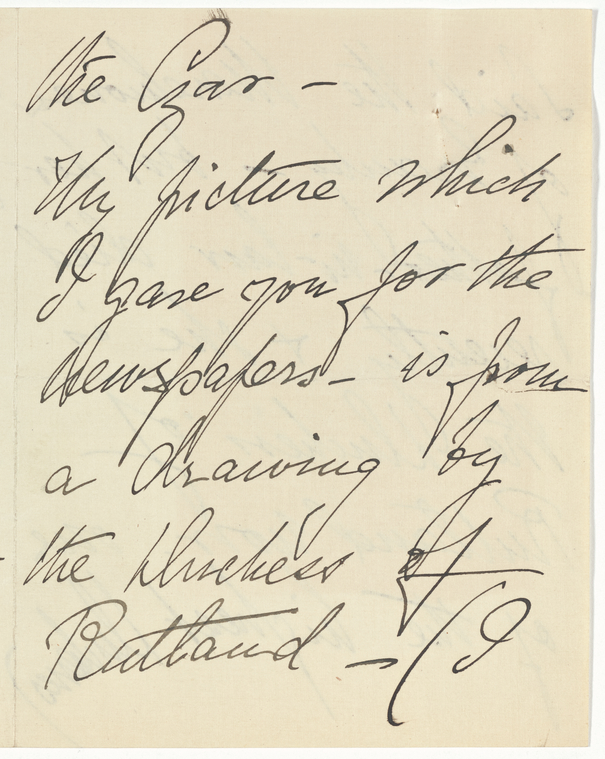 the Czar –
My picture which
I gave you for the
newspapers – is from
a drawing by
the Duchess of
Rutland – (I